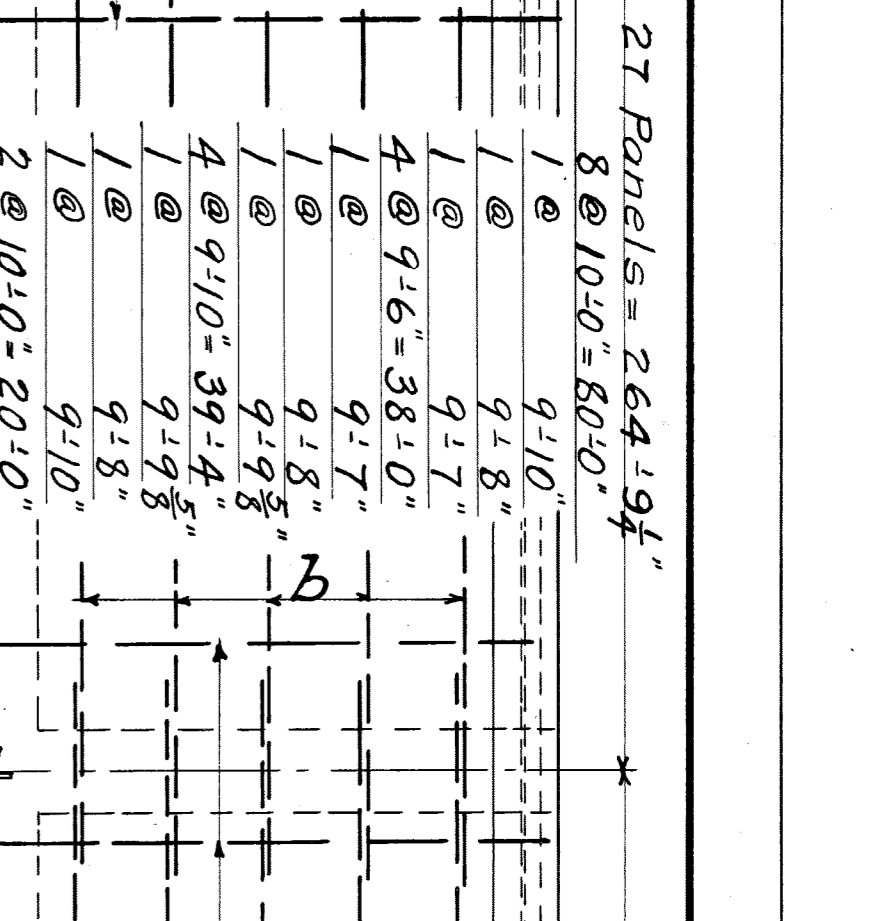 27 Panels = 264'-9 1/4"
8 @ 10'-0" = 80'-0"
1 @ 9'-10"
1 @ 9'-8"
1 @ 9'-7"
4 @ 9'-6" = 38'-0"
1 @ 9'-7"
1 @ 9'-8"
1 @ 9'-9 5/8"
4 @ 9'-10" = 39'-4"
1 @ 9'-9 5/8"
1 @ 9'-8"
1 @ 9'-10"
2 @ 10'-0" = 20'-0"